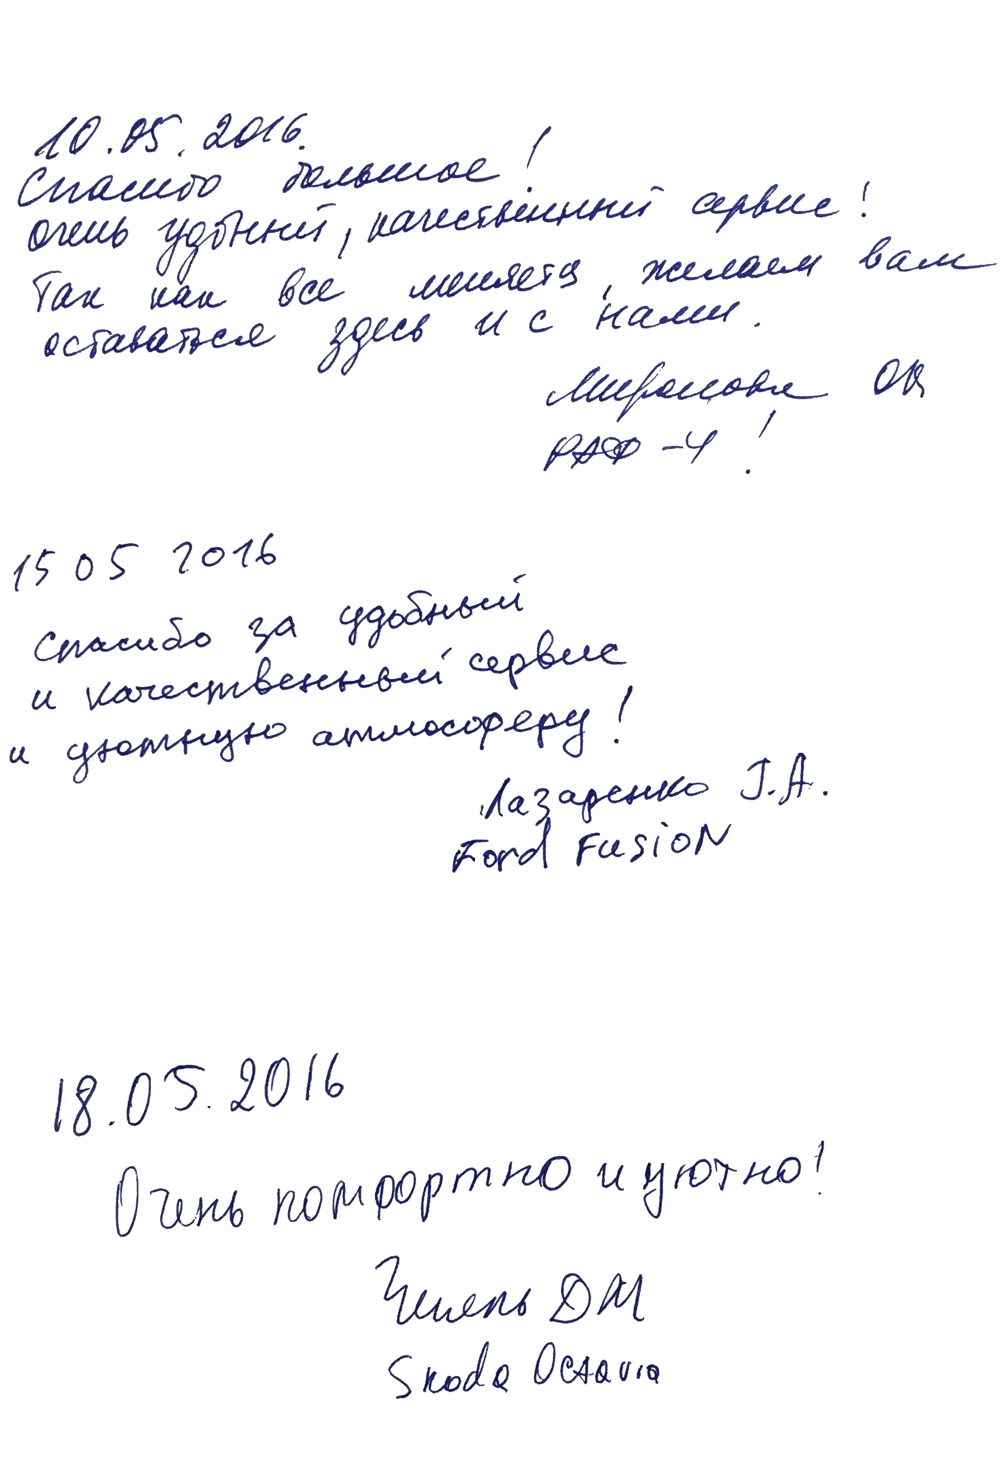 10.05.2016.
Спасибо большое!
очень удобный, качественный сервис!
Так как все меняется, желаем вам
оставаться здесь и с нами.
Миронова
РАФ-4!
15 05 2016
Спасибо за удобный
и качественный сервис
и уютную атмосферу!
Лазаренко Г.А.
Ford Fusion
18.05.2016
Очень комфортно и уютно!
ДМ
Skoda Octavia